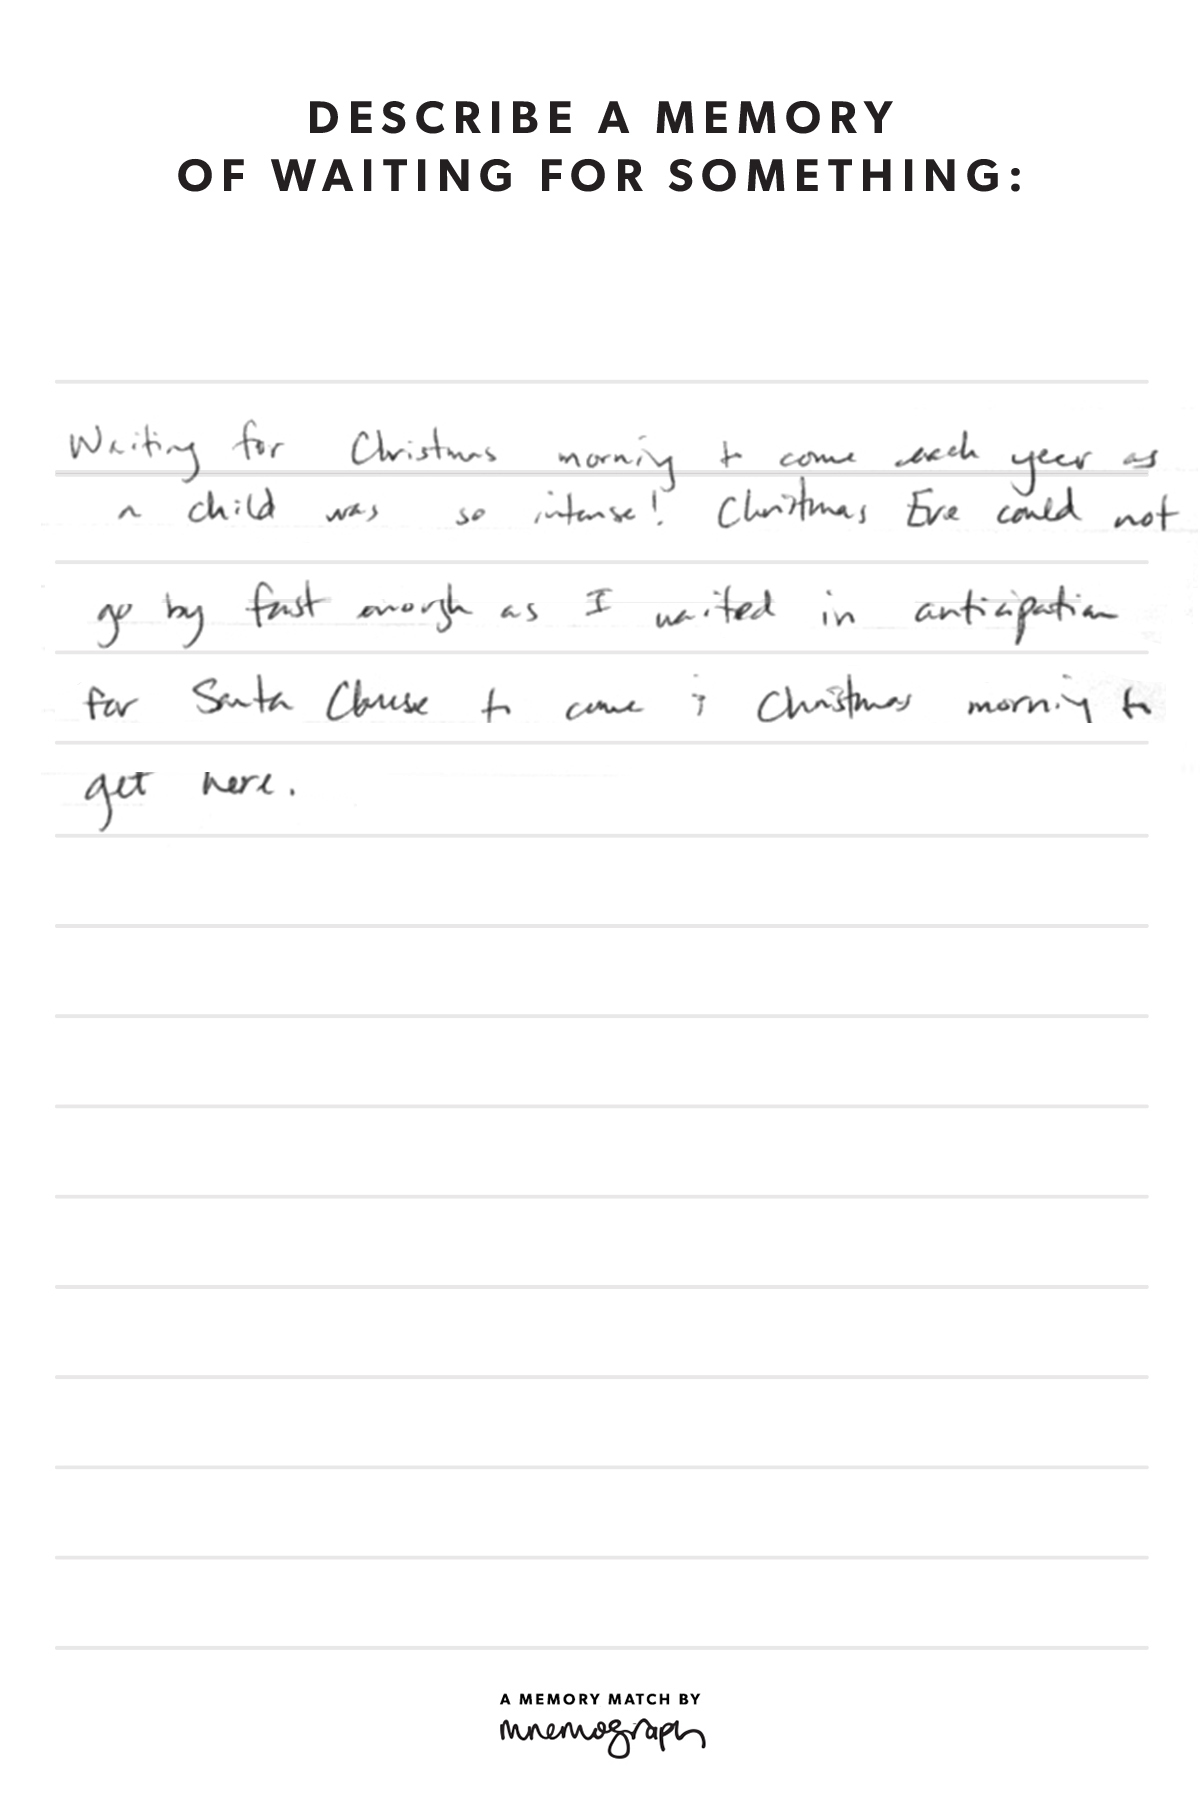 DESCRIBE A MEMORY
OF WAITING FOR SOMETHING:
Waiting for Christmas morning to come each year as
a child was so intense! Christmas Eve could not
go by fast enough as I waited in anticipation
for Santa Clause to come & Christmas morning to
get here.
A MEMORY MATCH BY
mnemograph